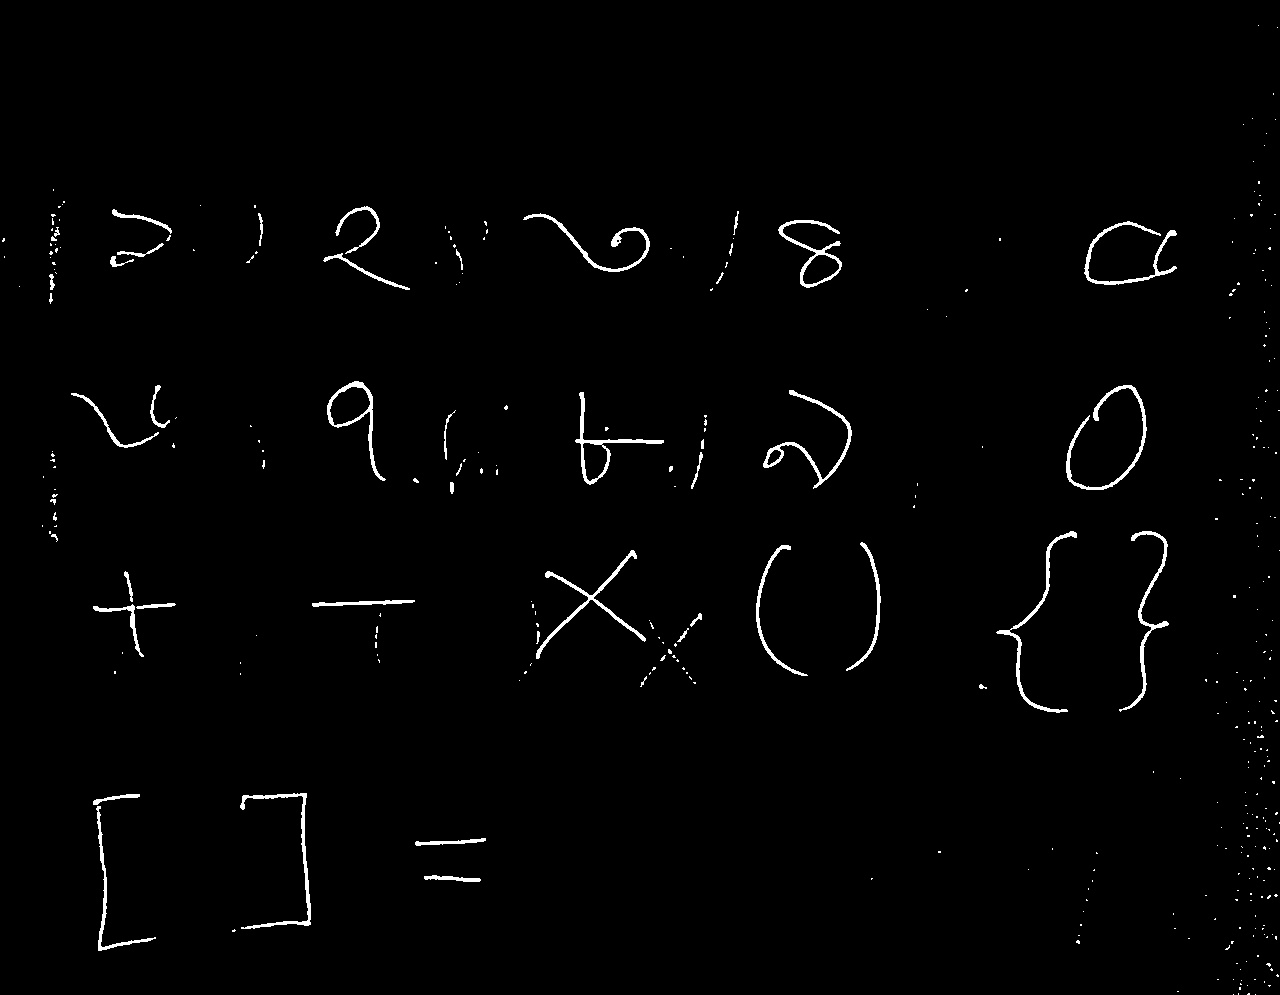 ১ ২ ৩ ৪ ৫
৬ ৭ ৮ ৯ ০
+ − × ( ) { }
[ ] =